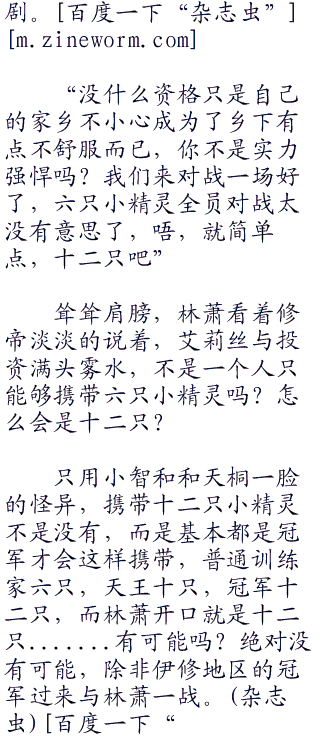 剧。[百度一下“杂志虫”]
[m.zineworm.com]
“没什么资格只是自己
的家乡不小心成为了乡下有
点不舒服而已，你不是实力
强悍吗？我们来对战一场好
了，六只小精灵全员对战太
没有意思了，唔，就简单
点，十二只吧”
耸耸肩膀，林萧看着修
帝淡淡的说着，艾莉丝与投
资满头雾水，不是一个人只
能够携带六只小精灵吗？怎
么会是十二只？
只用小智和和天桐一脸
的怪异，携带十二只小精灵
不是没有，而是基本都是冠
军才会这样携带，普通训练
家六只，天王十只，冠军十
二只，而林萧开口就是十二
只.......有可能吗？绝对没
有可能，除非伊修地区的冠
军过来与林萧一战。(杂志
虫)[百度一下“